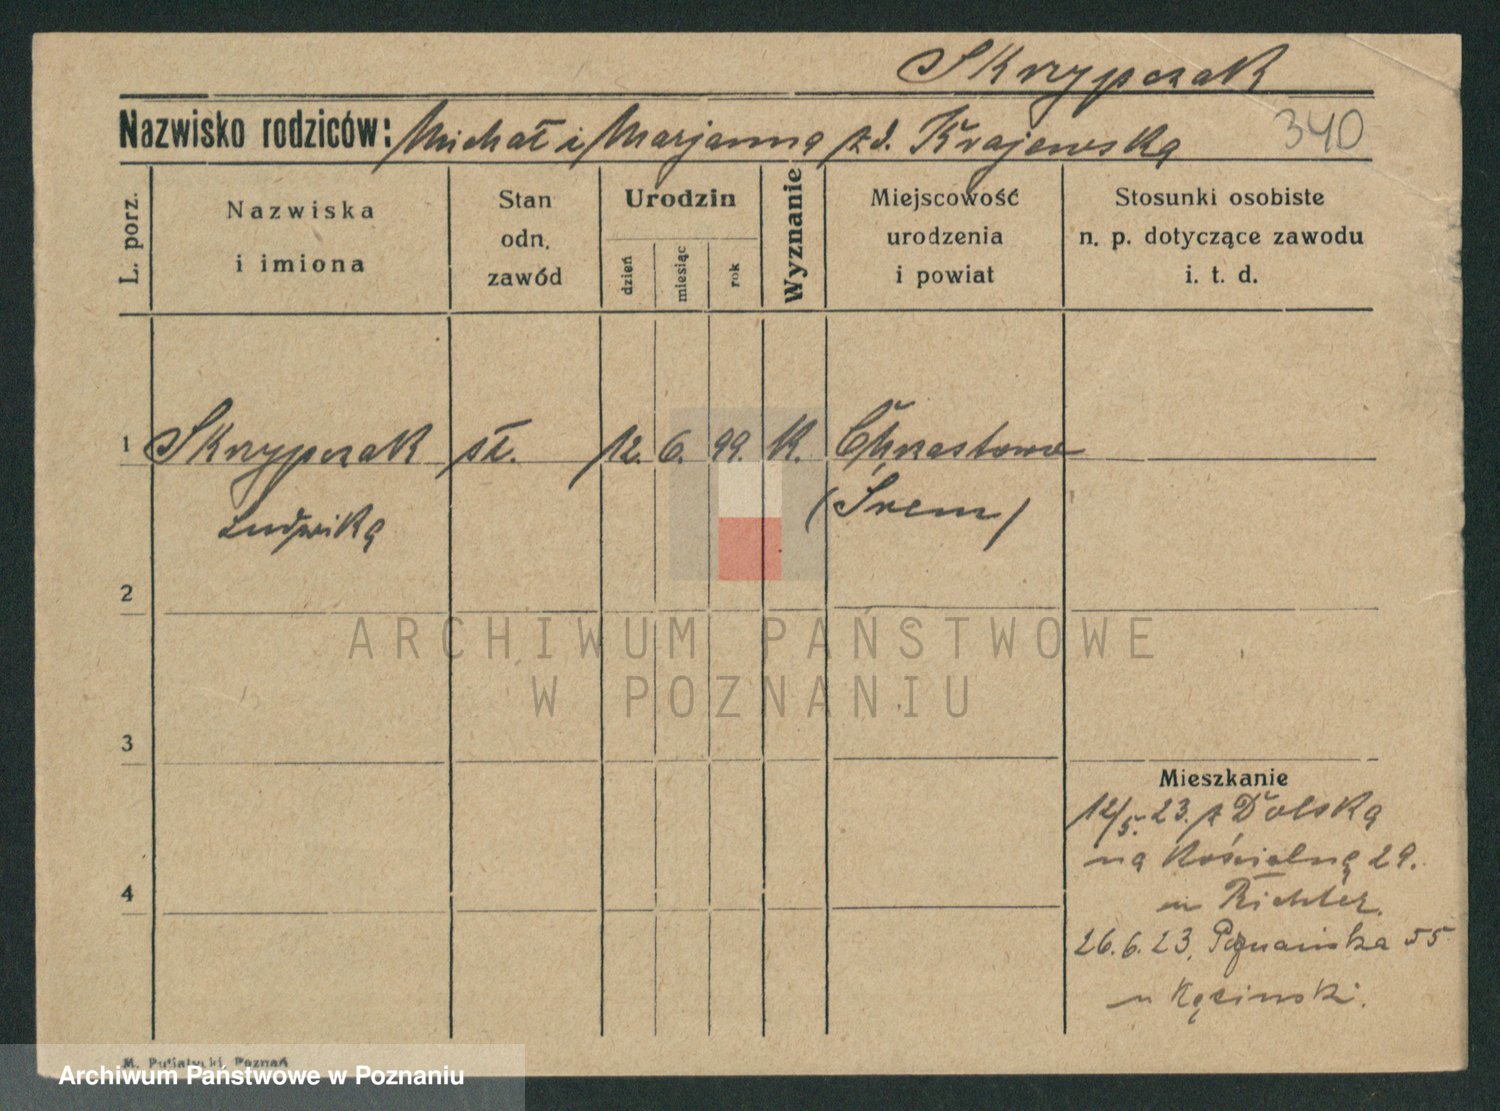 Skrzypczak
Nazwisko rodziców: Michał i Marjanna zd. Krajewska
340
L. porz.
Nazwiska
i imiona
Stan
odn.
zawód
Urodzin
dzień
miesiąc
rok
Wyznanie
Miejscowość
urodzenia
i powiat
Stosunki osobiste
n. p. dotyczące zawodu
i. t. d.
1 Skrzypczak sł. 12. 6. 99. K. Chrzastowo
Ludwika (Śrem)
2
3
4
Mieszkanie
12/5. 23. z Dolska
na Kościelną 29.
u Richter.
26.6.23. Poznańska 55
u
M. Putiatycki, Poznań
ARCHIWUM PAŃSTWOWE
W POZNANIU
Archiwum Państwowe w Poznaniu